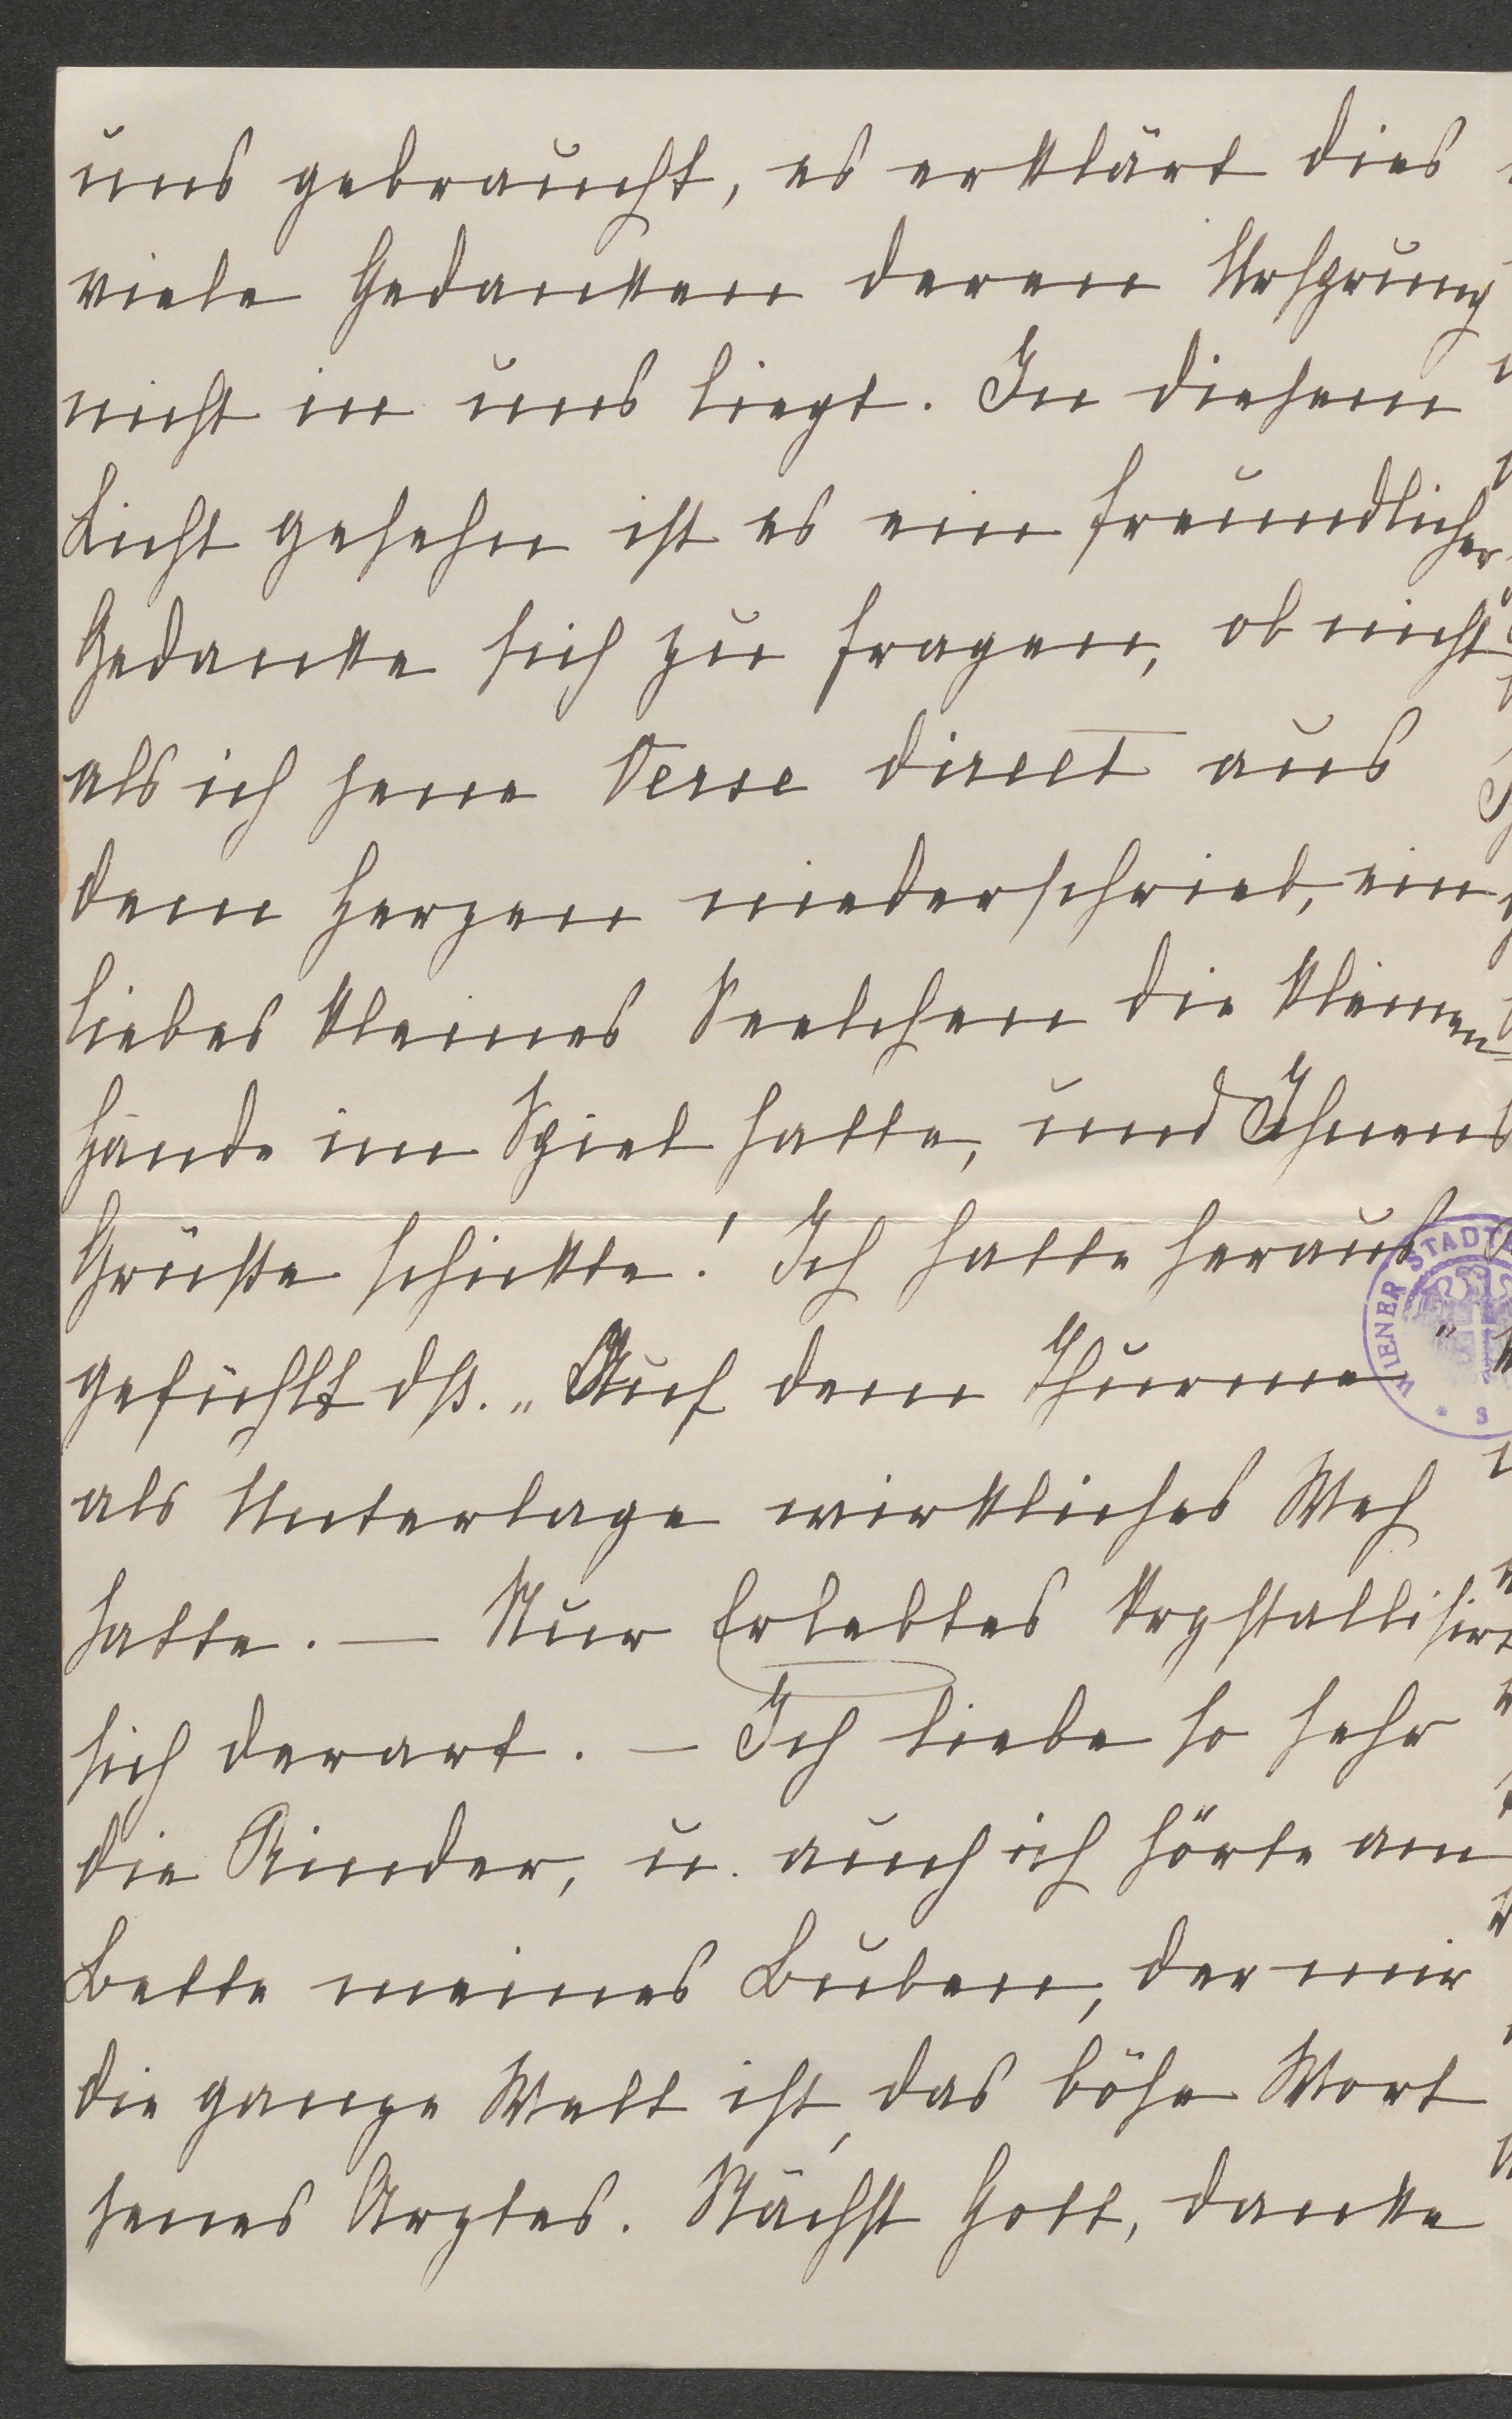 uns gebraucht, es erklärt dies
viele Gedanken deren Ursprung
nicht in uns liegt. In diesem
Licht gesehn ist es ein freundlicher
Gedanke sich zu fragen, ob nicht
als ich jene Verse direct aus
dem Herzen niederschrieb, ein
liebes kleines Seelchen die kleinen
Hände im Spiel hatte, und Ihnen
Grüße schickte! Ich hatte heraus
gefühlt dß. „Auf dem Thurme"
als Unterlage wirkliches Weh
hatte. — Nur Erlebtes krystallisirt
sich derart. — Ich liebe so sehr
die Kinder, u. auch ich hörte am
Bette meines Buben, der mir
die ganze Welt ist, das böse Wort
jenes Arztes. Nächst Gott, danke
WIENER STADT